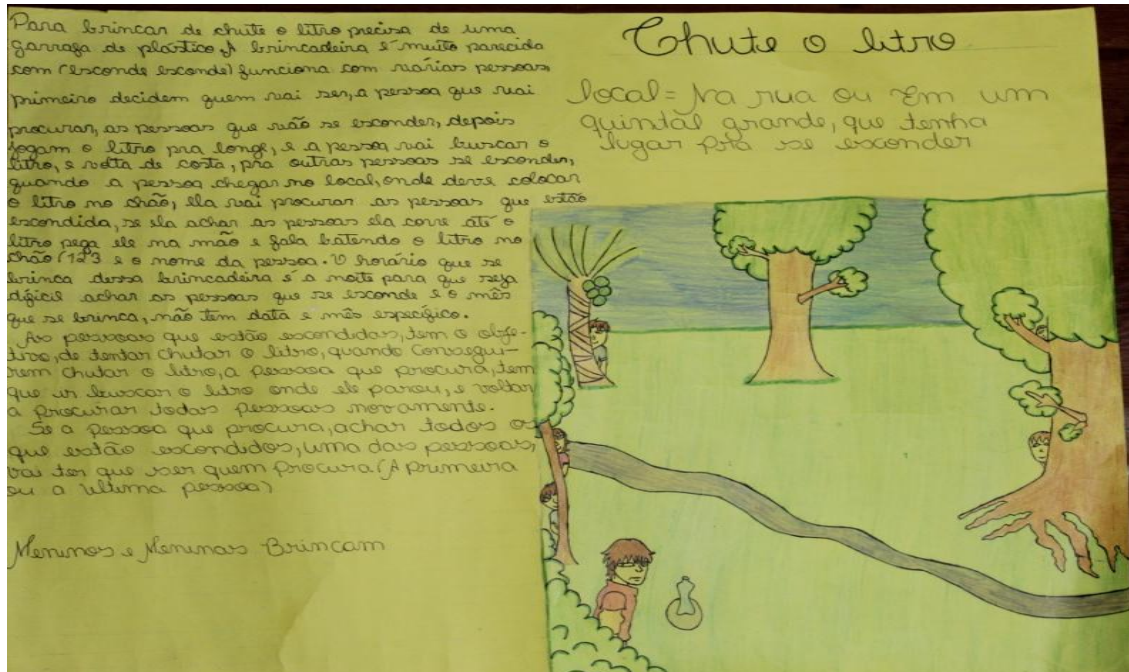 Chute o litro
local = Na rua ou Em um
quintal grande, que tenha
lugar pra se esconder
Para brincar de chute o litro precisa de uma
garrafa de plástico, A brincadeira é muito parecida
com (esconde esconde) funciona com várias pessoas,
primeiro decidem quem vai ser, a pessoa que vai
procurar, as pessoas que vão se esconder, depois
jogam o litro pra longe, e a pessoa vai buscar o
litro, e volta de costa, pra outras pessoas se esconder,
quando a pessoa chegar no local, onde deve colocar
o litro no chão, ela vai procurar as pessoas que estão
escondida, se ela achar as pessoas ela corre até o
litro pega ele na mão e fala batendo o litro no
chão (123 e o nome da pessoa. O horário que se
brinca dessa brincadeira é a noite para que seja
difícil achar as pessoas que se esconde e o mês
que se brinca, não tem data e mês específico.
As pessoas que estão escondidas, tem o obje-
tivo, de tentar chutar o litro, quando Consegui-
rem chutar o litro, a pessoa que procura, tem
que ir buscar o litro onde ele parou, e voltar
a procurar todas pessoas novamente.
Se a pessoa que procura, achar todos os
que estão escondidos, uma das pessoas,
vai ter que ser quem procura (A primeira
ou a ultima pessoa)
Meninos e Meninas Brincam